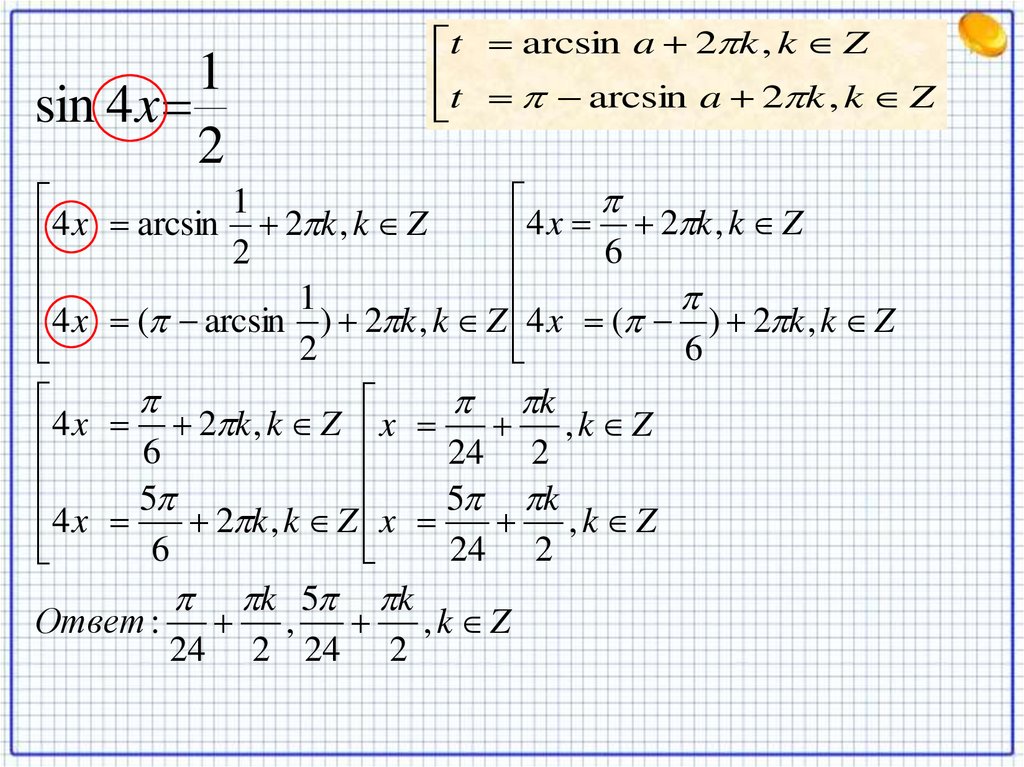 sin 4x = 1/2
t = arcsin a + 2πk, k ∈ Z
t = π − arcsin a + 2πk, k ∈ Z
4x = arcsin 1/2 + 2πk, k ∈ Z
4x = (π − arcsin 1/2) + 2πk, k ∈ Z
4x = π/6 + 2πk, k ∈ Z
4x = (π − π/6) + 2πk, k ∈ Z
4x = π/6 + 2πk, k ∈ Z
4x = 5π/6 + 2πk, k ∈ Z
x = π/24 + πk/2, k ∈ Z
x = 5π/24 + πk/2, k ∈ Z
Ответ: π/24 + πk/2, 5π/24 + πk/2, k ∈ Z